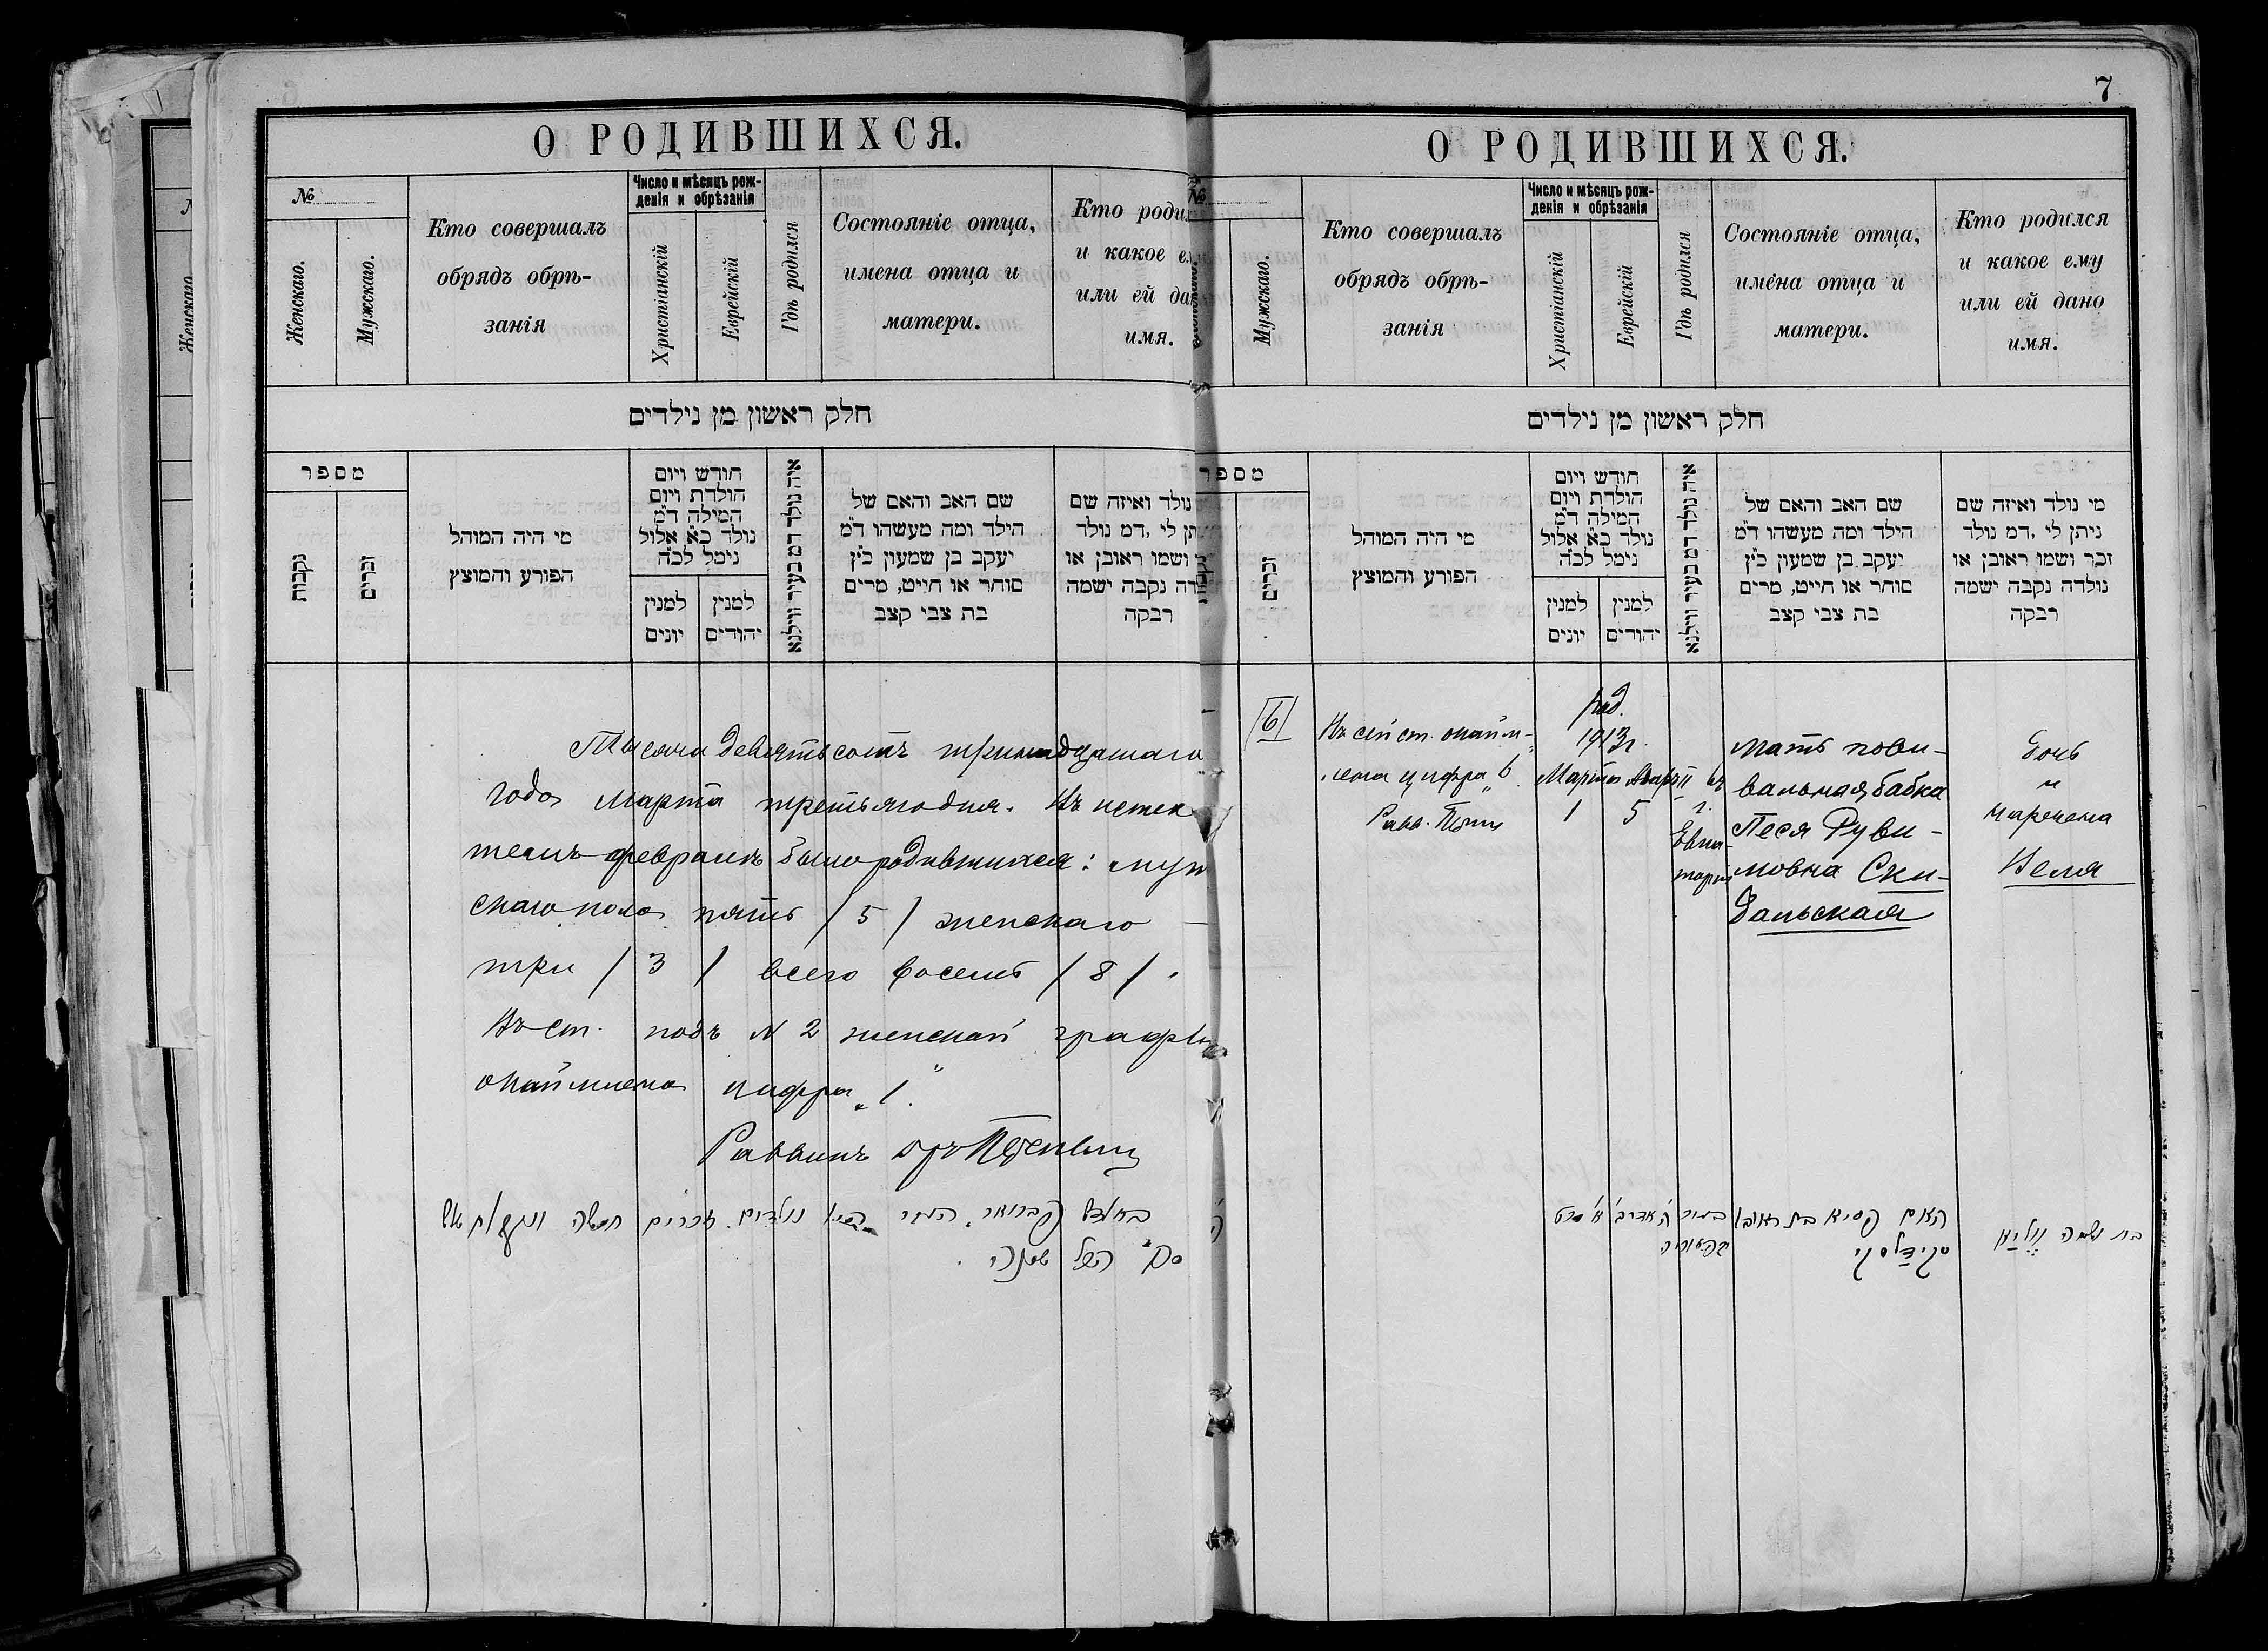 О РОДИВШИХСЯ.
№
Женскаго.
Мужскаго.
Кто совершалъ
обрядъ обрѣ-
занія
Число и мѣсяцъ рож-
денія и обрѣзанія
Христіанскій
Еврейскій
Гдѣ родился
Состояніе отца,
имена отца и
матери.
Кто роди
и какое е
или ей да
имя.
חלק ראשון מן נילדים
מספר
נקבות
זכרים
מי היה המוהל
הפורע והמוצץ
חודש ויום
הולדת ויום
המילה ד"מ
נולד כ"א אלול
נימל לכ"ה
למנין
יונים
למנין
יהודים
איה נולד דמ בעיר ווילנא
שם האב והאם של
הילד ומה מעשהו ד"מ
יעקב בן שמעון כ"ץ
סוחר או חייט, מרים
בת צבי קצב
נולד ואיזה שם
תן לי ,דמ נולד
ושמו ראובן או
דה נקבה ישמה
רבקה
Тысяча девятьсотъ тринадцатаго
года Марта третьяго дня. Въ истек
шемъ февралѣ было родившихся: муж
скаго пола пять / 5 / женскаго –
три / 3 / всего восемь / 8 / .
Въ ст. подъ № 2 женской графы
окаймлена цифра „1".
Раввинъ
זכרים חמשה
7
О РОДИВШИХСЯ.
№
Мужскаго.
Кто совершалъ
обрядъ обрѣ-
занія
Число и мѣсяцъ рож-
денія и обрѣзанія
Христіанскій
Еврейскій
Гдѣ родился
Состояніе отца,
имена отца и
матери.
Кто родился
и какое ему
или ей дано
имя.
חלק ראשון מן נילדים
מספר
זכרים
מי היה המוהל
הפורע והמוצץ
חודש ויום
הולדת ויום
המילה ד"מ
נולד כ"א אלול
נימל לכ"ה
למנין
יונים
למנין
יהודים
איה נולד דמ בעיר ווילנא
שם האב והאם של
הילד ומה מעשהו ד"מ
יעקב בן שמעון כ"ץ
סוחר או חייט, מרים
בת צבי קצב
מי נולד ואיזה שם
ניתן לי ,דמ נולד
זכר ושמו ראובן או
נולדה נקבה ישמה
רבקה
6
Въ сей ст. окайм-
лена цифра „6"
Равв.
род.
1913 г.
Марта
1
Адаръ II
5
въ
г.
Евпа-
торіи
Мать пови-
вальная бабка
Песя Руви-
новна Ски-
дальская
Дочь
и
наречена
Веля
האם פסיא בת ראובן
סקידלסקי
בת ושמה וועליא